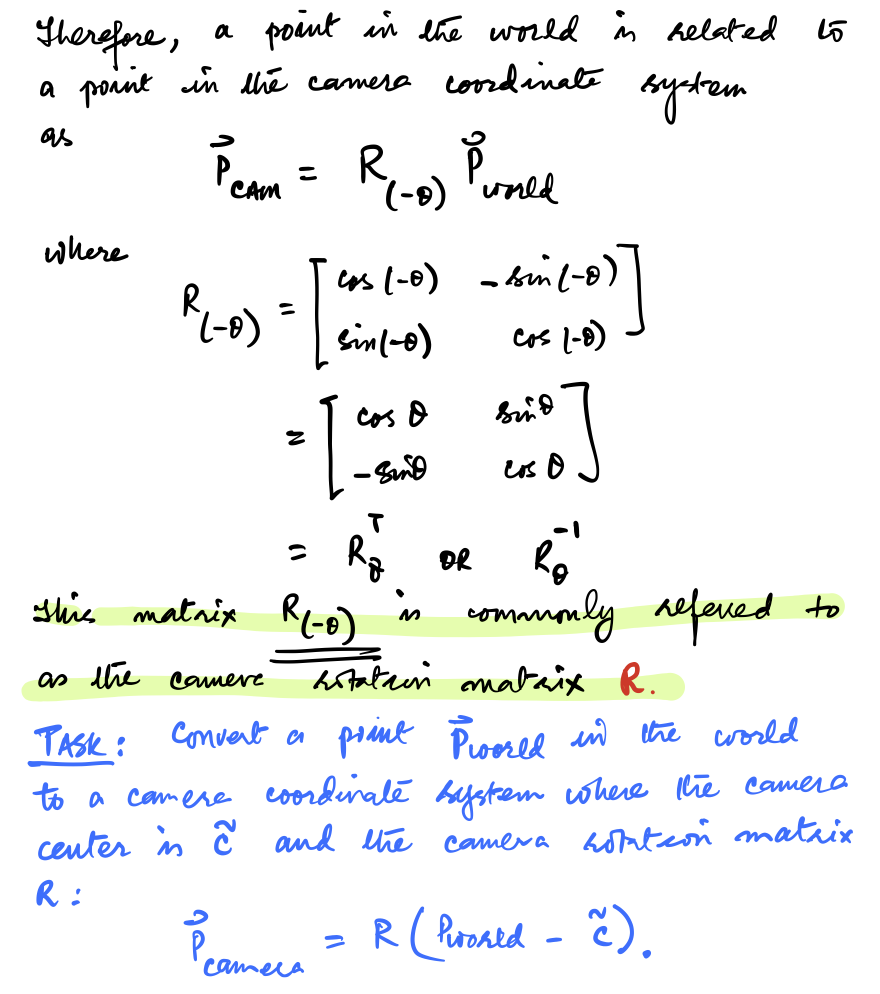 Therefore, a point in the world is related to
a point in the camera coordinate system
as
P⃗_CAM = R_(-θ) P⃗_world
where
R_(-θ) = [ cos(-θ) -sin(-θ) ; sin(-θ) cos(-θ) ]
= [ cos θ sinθ ; -sinθ cos θ ]
= R_θ^T OR R_θ^-1
This matrix R_(-θ) is commonly refered to
as the camera rotation matrix R.
TASK: Convert a point P⃗world in the world
to a camera coordinate system where the camera
center is c̃ and the camera rotation matrix
R:
P⃗_camera = R(Pworld - c̃).